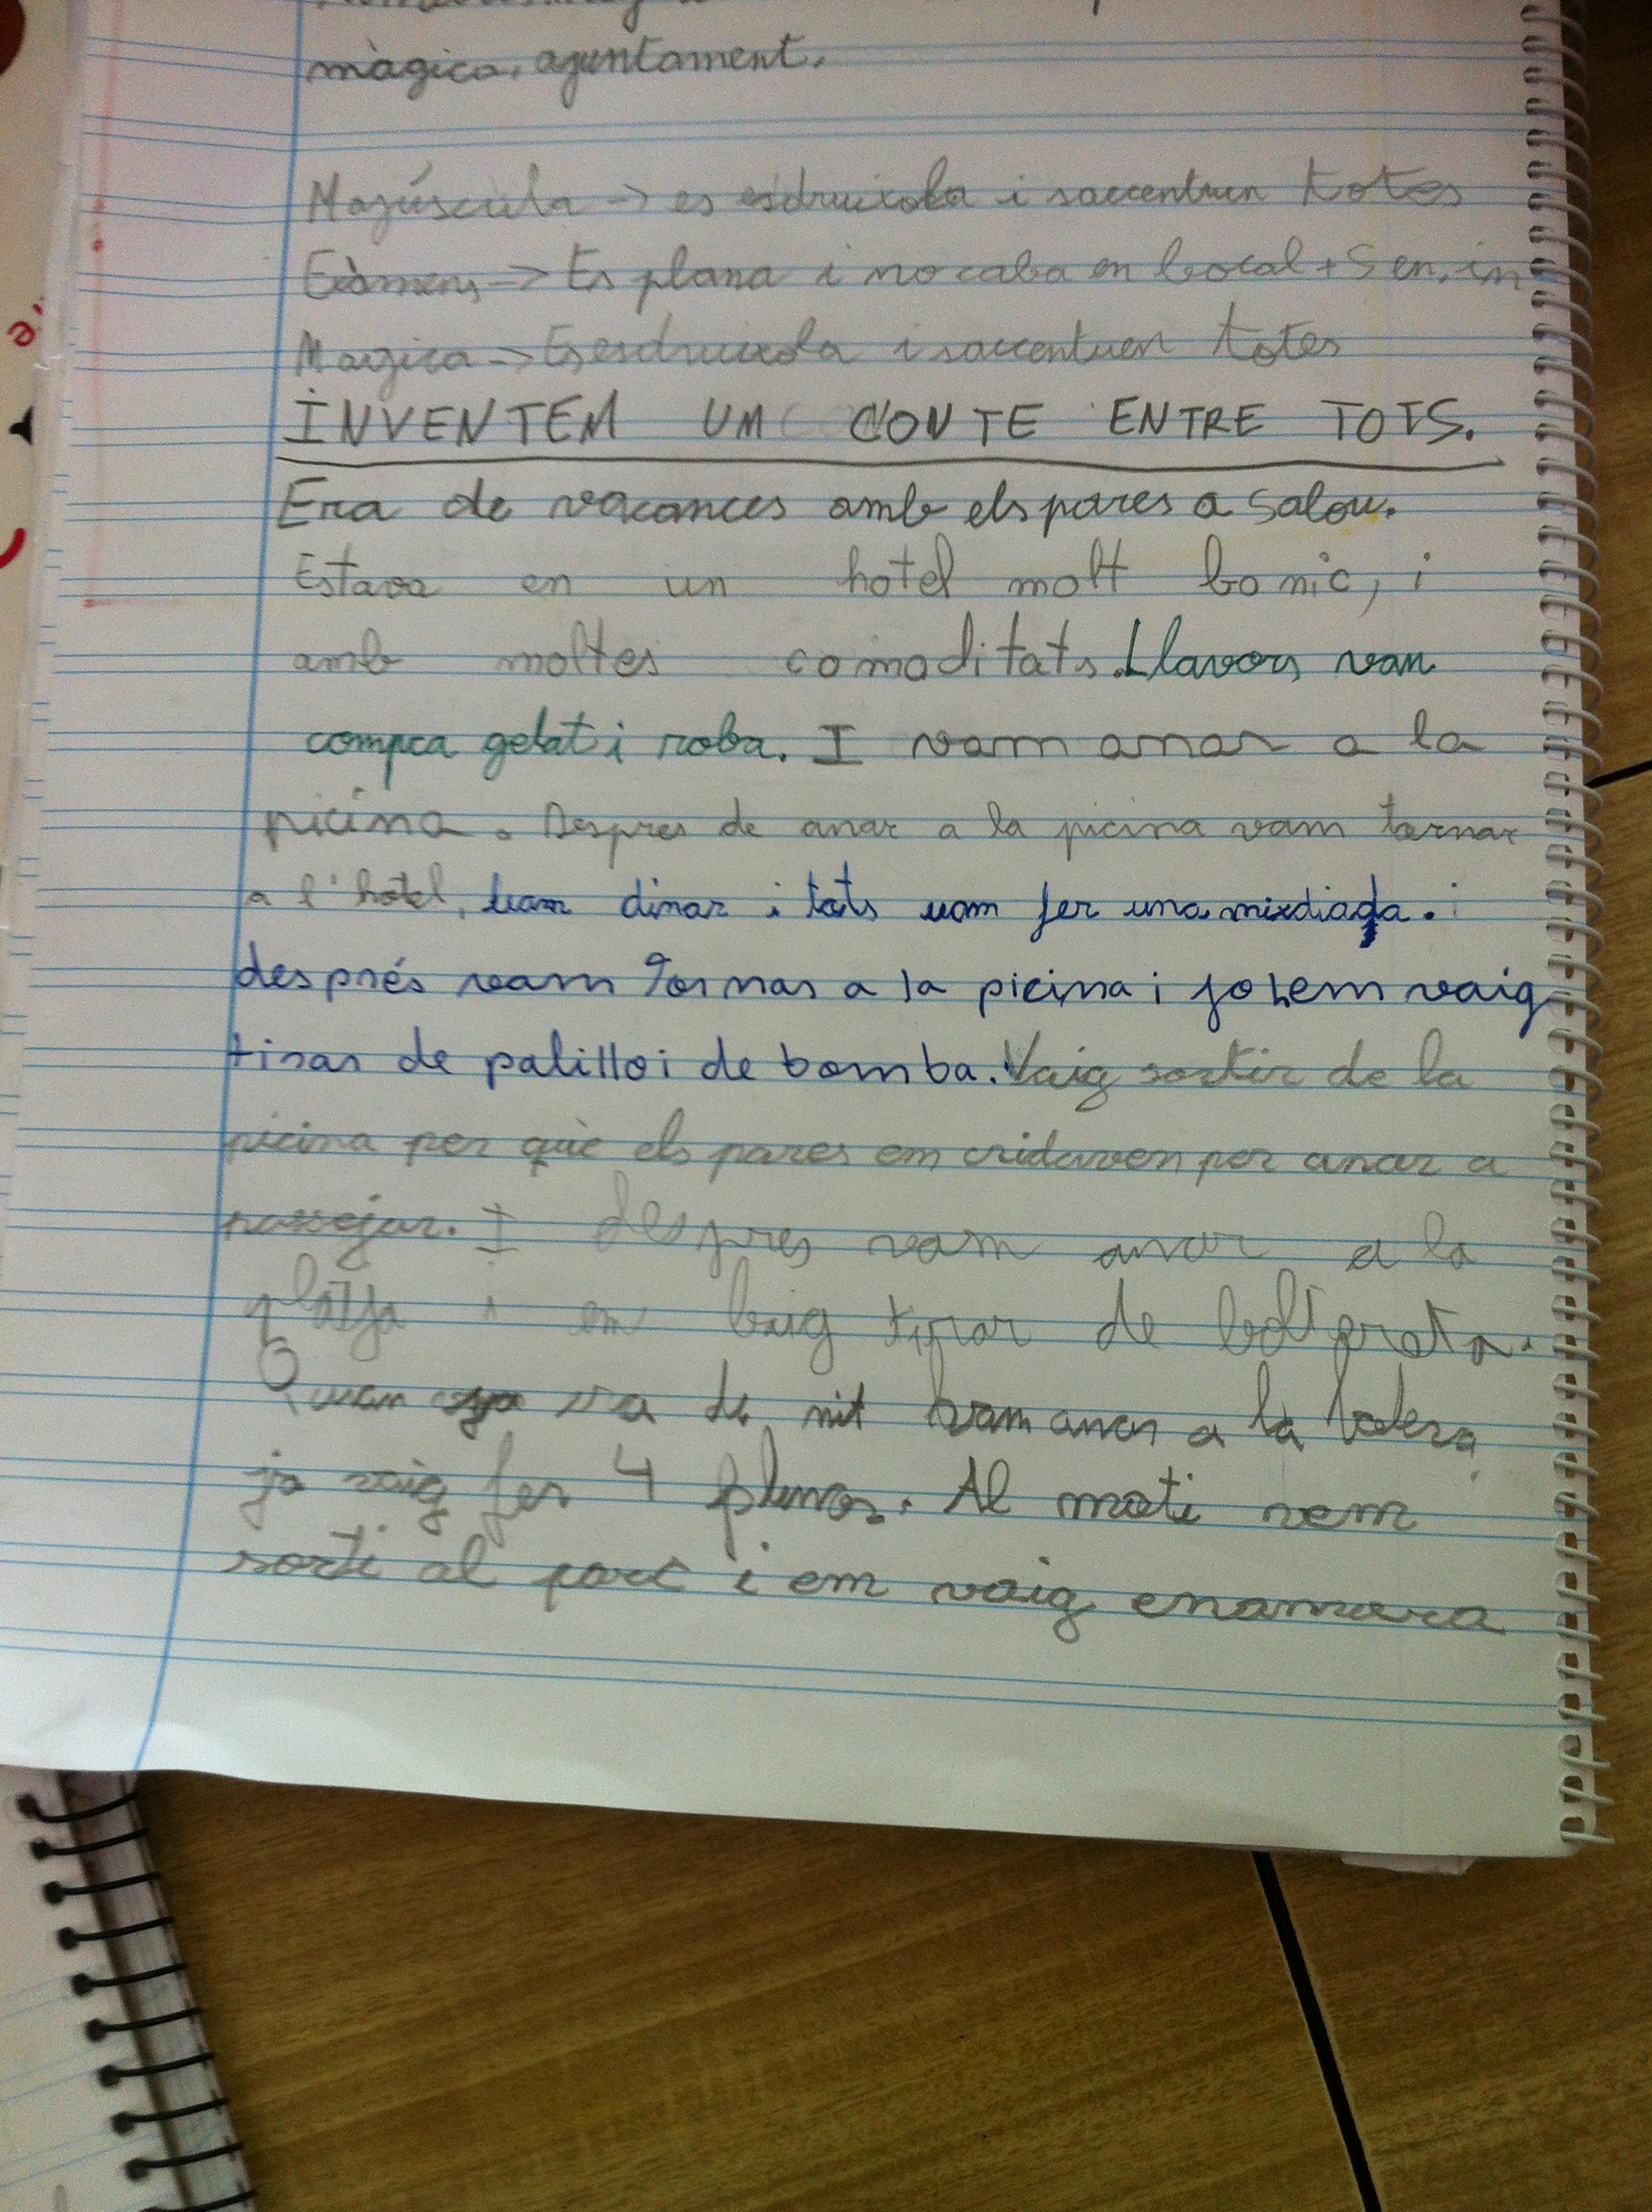 màgica, ajuntament.
Majúscula -> es esdruixola i saccentuen totes
Exàmens -> Es plana i no caba en bocal + s en, in
Magica -> Es esdruixola i saccentuen totes
INVENTEM UM CONTE ENTRE TOTS.
Era de vacances amb els pares a Salou.
Estava en un hotel molt bonic, i
amb moltes comoditats. Llavors van
compra gelat i roba. I vam anar a la
picina. Despres de anar a la picina vam tornar
a l'hotel, vam dinar i tots vam fer una mixdiada.
després vam tornar a la picina i jo hem vaig
tirar de palillo i de bomba. Vaig sortir de la
picina per què els pares em cridaven per anar a
passejar. I despres vam anar a la
platja i em baig tirar de boltereta.
Quan va de nit bam anar a la bolera
jo vaig fer 4 plenos. Al mati vem
sorti al parc i em vaig enamora